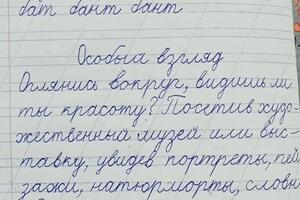 бат бант бант
Особый взгляд
Оглянись вокруг, видишь ли
ты красоту? Посетив худо-
жественный музей или выс-
тавку, увидев портреты, пей
зажи, натюрморты, словн